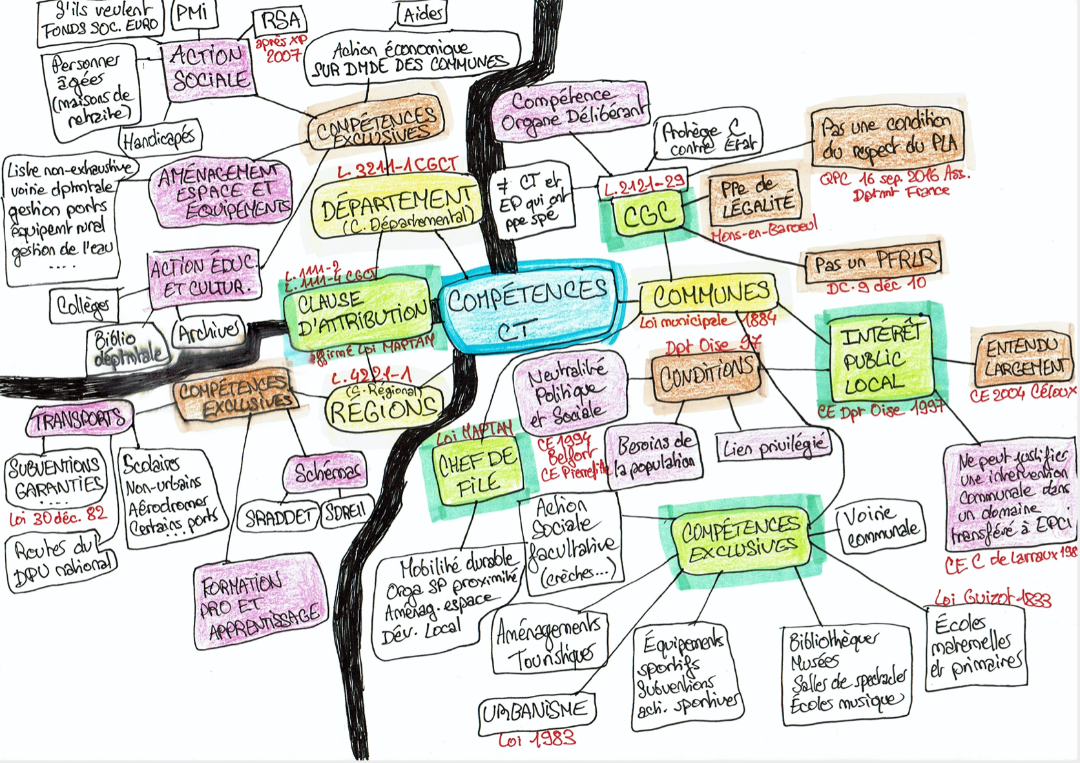 S'ils veulent
FONDS SOC. EURO
PMi
RSA
après xp
2007
Aides
Action économique
SUR DMDE DES COMMUNES
ACTION
SOCIALE
Personnes
âgées
(maisons de
retraite)
Handicapés
COMPÉTENCES
EXCLUSIVES
L. 3211-1 CGCT
DÉPARTEMENT
(C. Départemental)
AMÉNAGEMENT
ESPACE ET
EQUIPEMENTS
Liste non-exhaustive
voirie dptmtale
gestion ports
équipemt rural
gestion de l'eau
....
ACTION ÉDUC.
ET CULTUR.
Collèges
Biblio
déptmtale
Archives
L. 1111-2
L. 1111-4 CGCT
CLAUSE
D'ATTRIBUTION
affirmé Loi MAPTAM
COMPÉTENCES
CT
Compétence
Organe Délibérant
Protège C
contre État
≠ CT et
EP qui ont
ppe spé
L. 2121-29
CGC
Pas une condition
du respect du PLA
QPC 16 sep. 2016 Ass.
Dptmt France
PPe de
LÉGALITÉ
Mons-en-Baroeul
Pas un PFRLR
DC. 9 déc 10
COMMUNES
Loi municipale 1884
Dpt Oise 97
CONDITIONS
INTÉRÊT
PUBLIC
LOCAL
CE Dpt Oise 1997
ENTENDU
LARGEMENT
CE 2004 Céloux
Ne peut justifier
une intervention
Communale dans
un domaine
transféré à EPCI
CE C de Larraux 198
Neutralité
Politique
et Sociale
CE 1994
Belfort
CE Pierrefit
Besoins de
la population
Lien privilégié
L. 4221-1
(C. Régional)
RÉGIONS
COMPÉTENCES
EXCLUSIVES
TRANSPORTS
SUBVENTIONS
GARANTIES
....
Loi 30 déc. 82
Routes du
DPU national
Scolaires
Non-urbains
Aérodromes
Certains ports
...
Schémas
SRADDET
SDREII
FORMATION
PRO ET
APPRENTISSAGE
Loi MAPTAM
CHEF DE
FILE
Mobilité durable
Orga SP proximité
Aménag. espace
Dév. Local
Action
Sociale
facultative
(crèches...)
COMPÉTENCES
EXCLUSIVES
Voirie
communale
Aménagements
Touristiques
URBANISME
Loi 1983
Équipements
sportifs
Subventions
acti. sportives
Bibliothèques
Musées
Salles de spectacles
Écoles musique
Loi Guizot 1833
Écoles
maternelles
et primaires